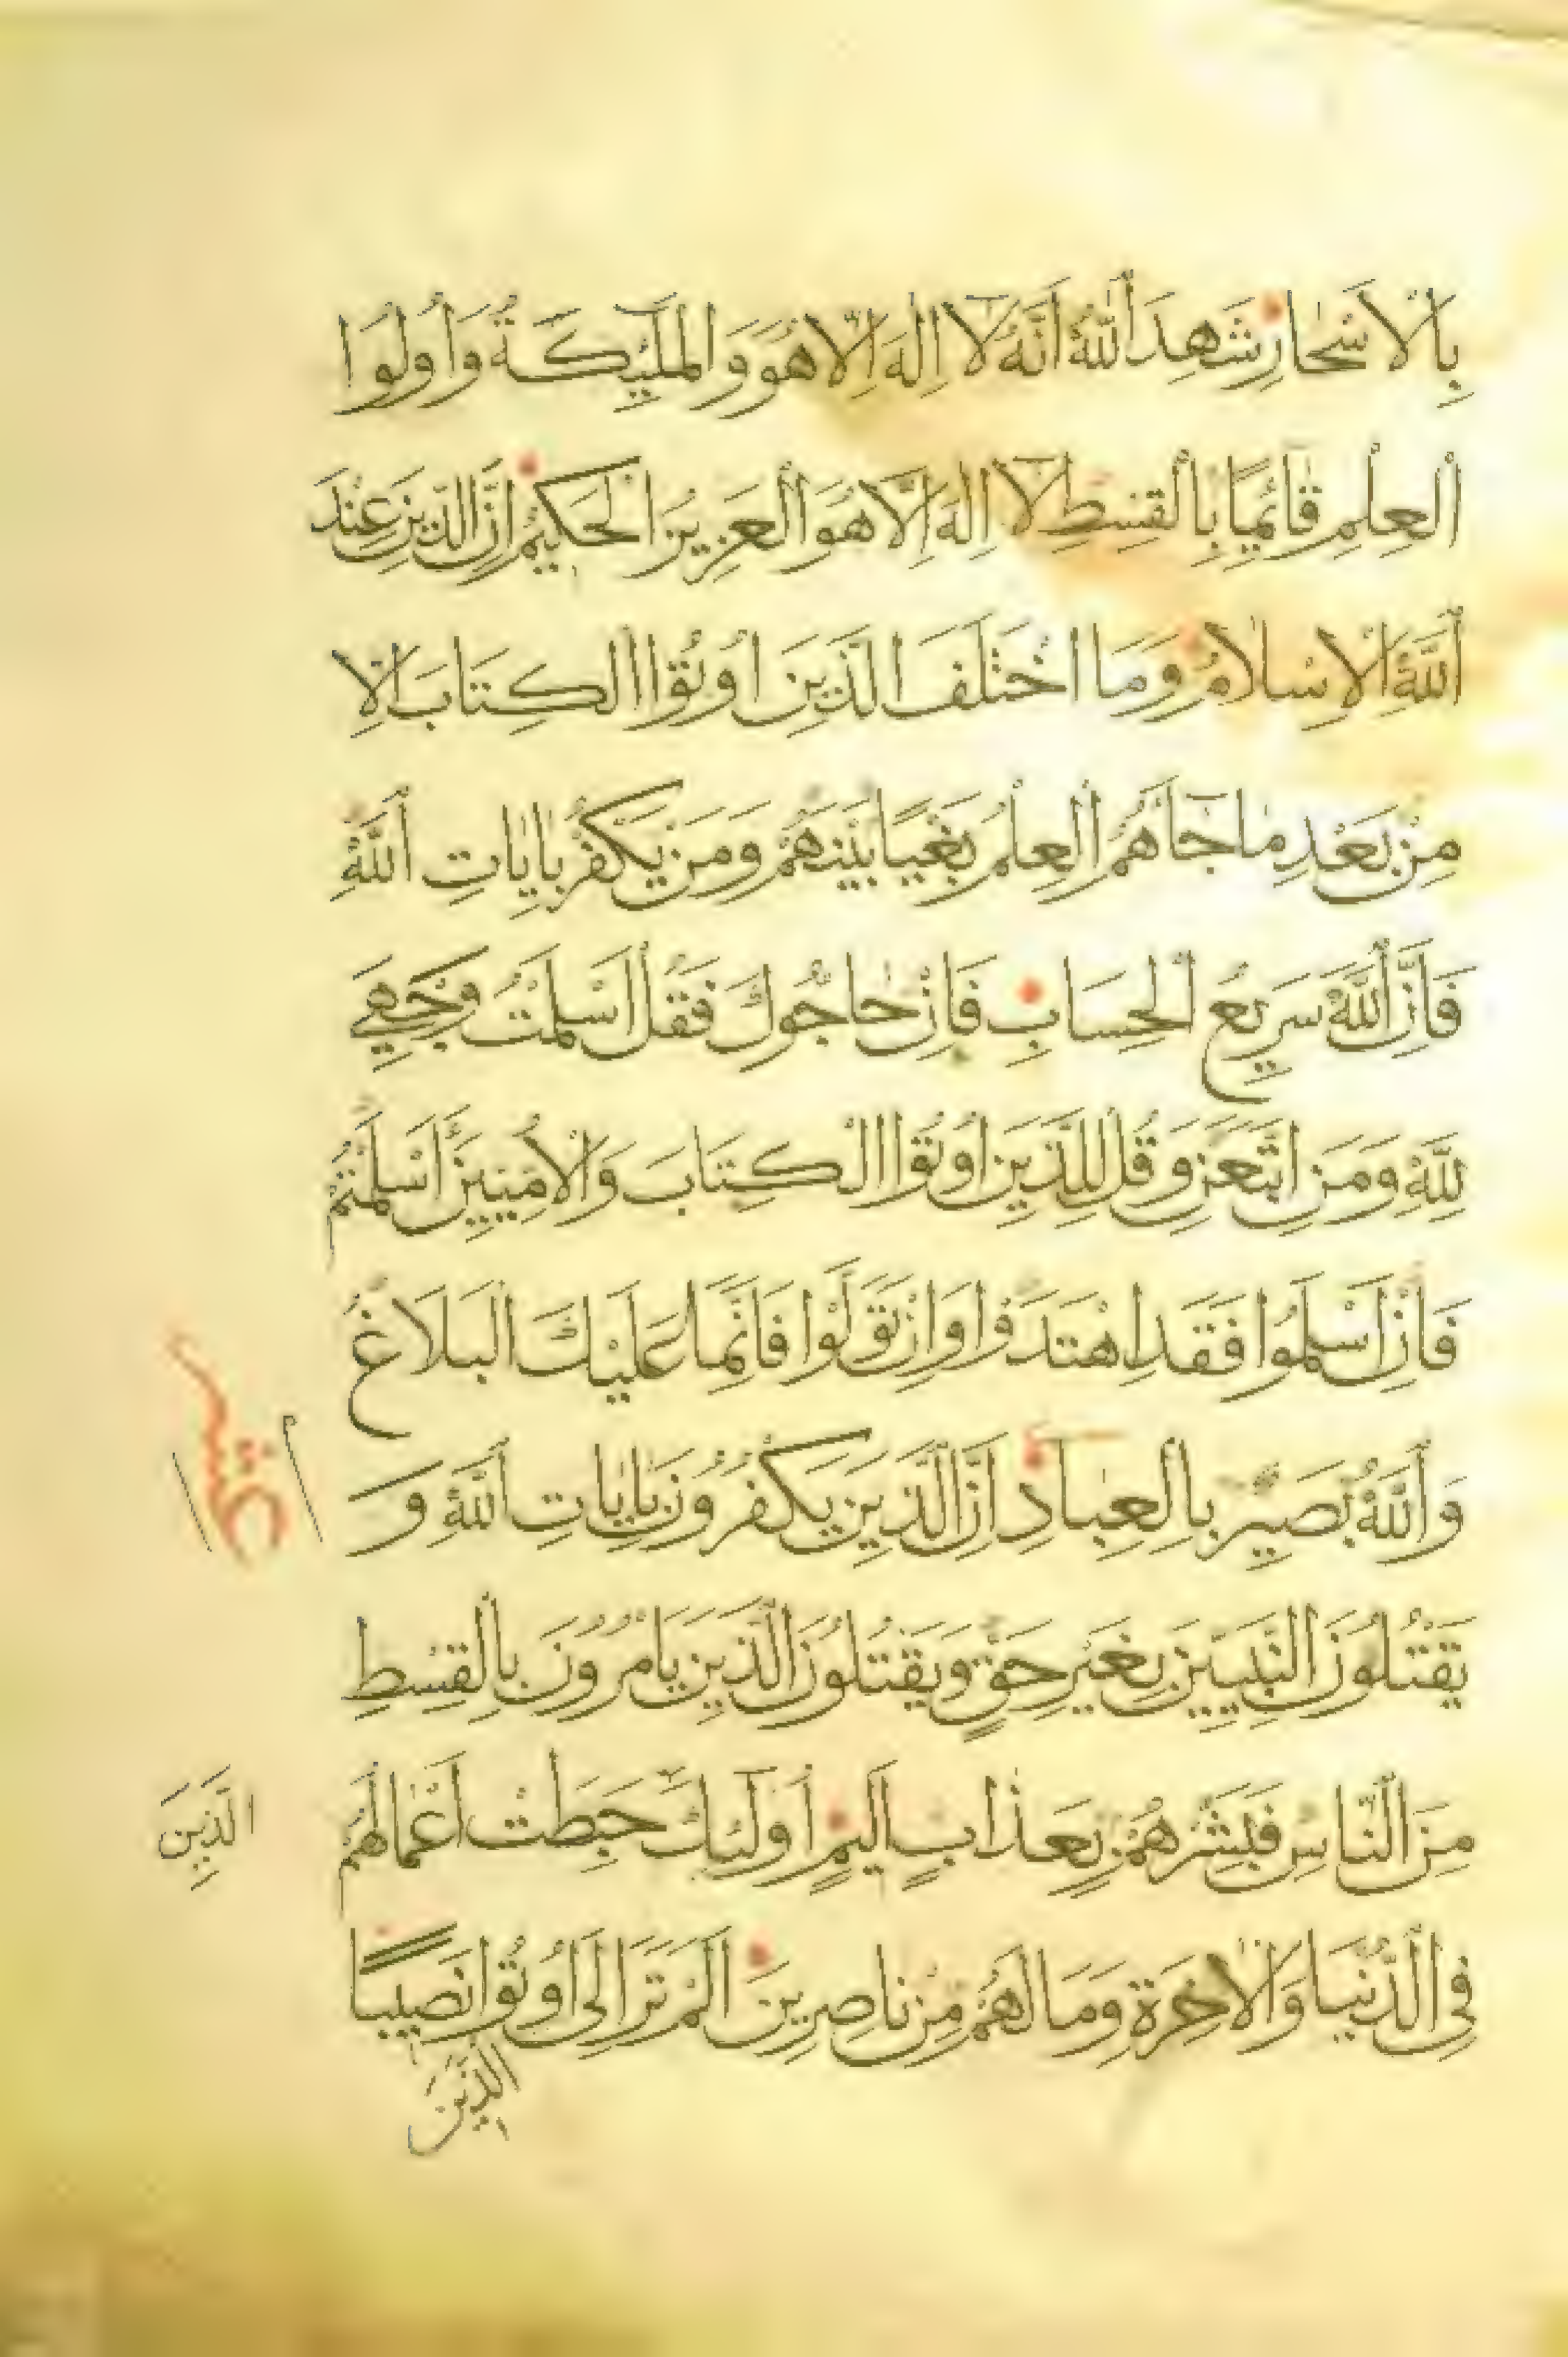 بِالْاَسْحَارِ شَهِدَ اَللّٰهُ اَنَّهُ لَا اِلٰهَ اِلَّا هُوَ وَالْمَلٰٓئِكَةُ وَاُولُوا
اَلْعِلْمِ قَائِمًا بِالْقِسْطِ لَا اِلٰهَ اِلَّا هُوَ الْعَزِيزُ الْحَكِيمُ اِنَّ الدِّينَ عِنْدَ
اَللّٰهِ الْاِسْلَامُ وَمَا اخْتَلَفَ الَّذِينَ اُوتُوا الْكِتَابَ اِلَّا
مِنْ بَعْدِ مَا جَاهُمُ الْعِلْمُ بَغْيًا بَيْنَهُمْ وَمَنْ يَكْفُرْ بِاٰيَاتِ اَللّٰهِ
فَاِنَّ اَللّٰهَ سَرِيعُ اَلْحِسَابِ فَاِنْ حَاجُّوكَ فَقُلْ اَسْلَمْتُ وَجْهِيَ
لِلّٰهِ وَمَنِ اتَّبَعَنِ وَقُلْ لِلَّذِينَ اُوتُوا الْكِتَابَ وَالْاُمِّيِّينَ ءَاَسْلَمْتُمْ
فَاِنْ اَسْلَمُوا فَقَدِ اهْتَدَوْا وَاِنْ تَوَلَّوْا فَاِنَّمَا عَلَيْكَ الْبَلَاغُ
وَاَللّٰهُ بَصِيرٌ بِالْعِبَادِ اِنَّ الَّذِينَ يَكْفُرُونَ بِاٰيَاتِ اَللّٰهِ وَ
يَقْتُلُونَ النَّبِيِّينَ بِغَيْرِ حَقٍّ وَيَقْتُلُونَ الَّذِينَ يَامُرُونَ بِالْقِسْطِ
مِنَ النَّاسِ فَبَشِّرْهُمْ بِعَذَابٍ اَلِيمٍ اُولٰٓئِكَ حَبِطَتْ اَعْمَالُهُمْ
الَّذِينَ
فِي الدُّنْيَا وَالْاٰخِرَةِ وَمَا لَهُمْ مِنْ نَاصِرِينَ اَلَمْ تَرَ اِلَى اُوتُوا نَصِيبًا
الَّذِينَ